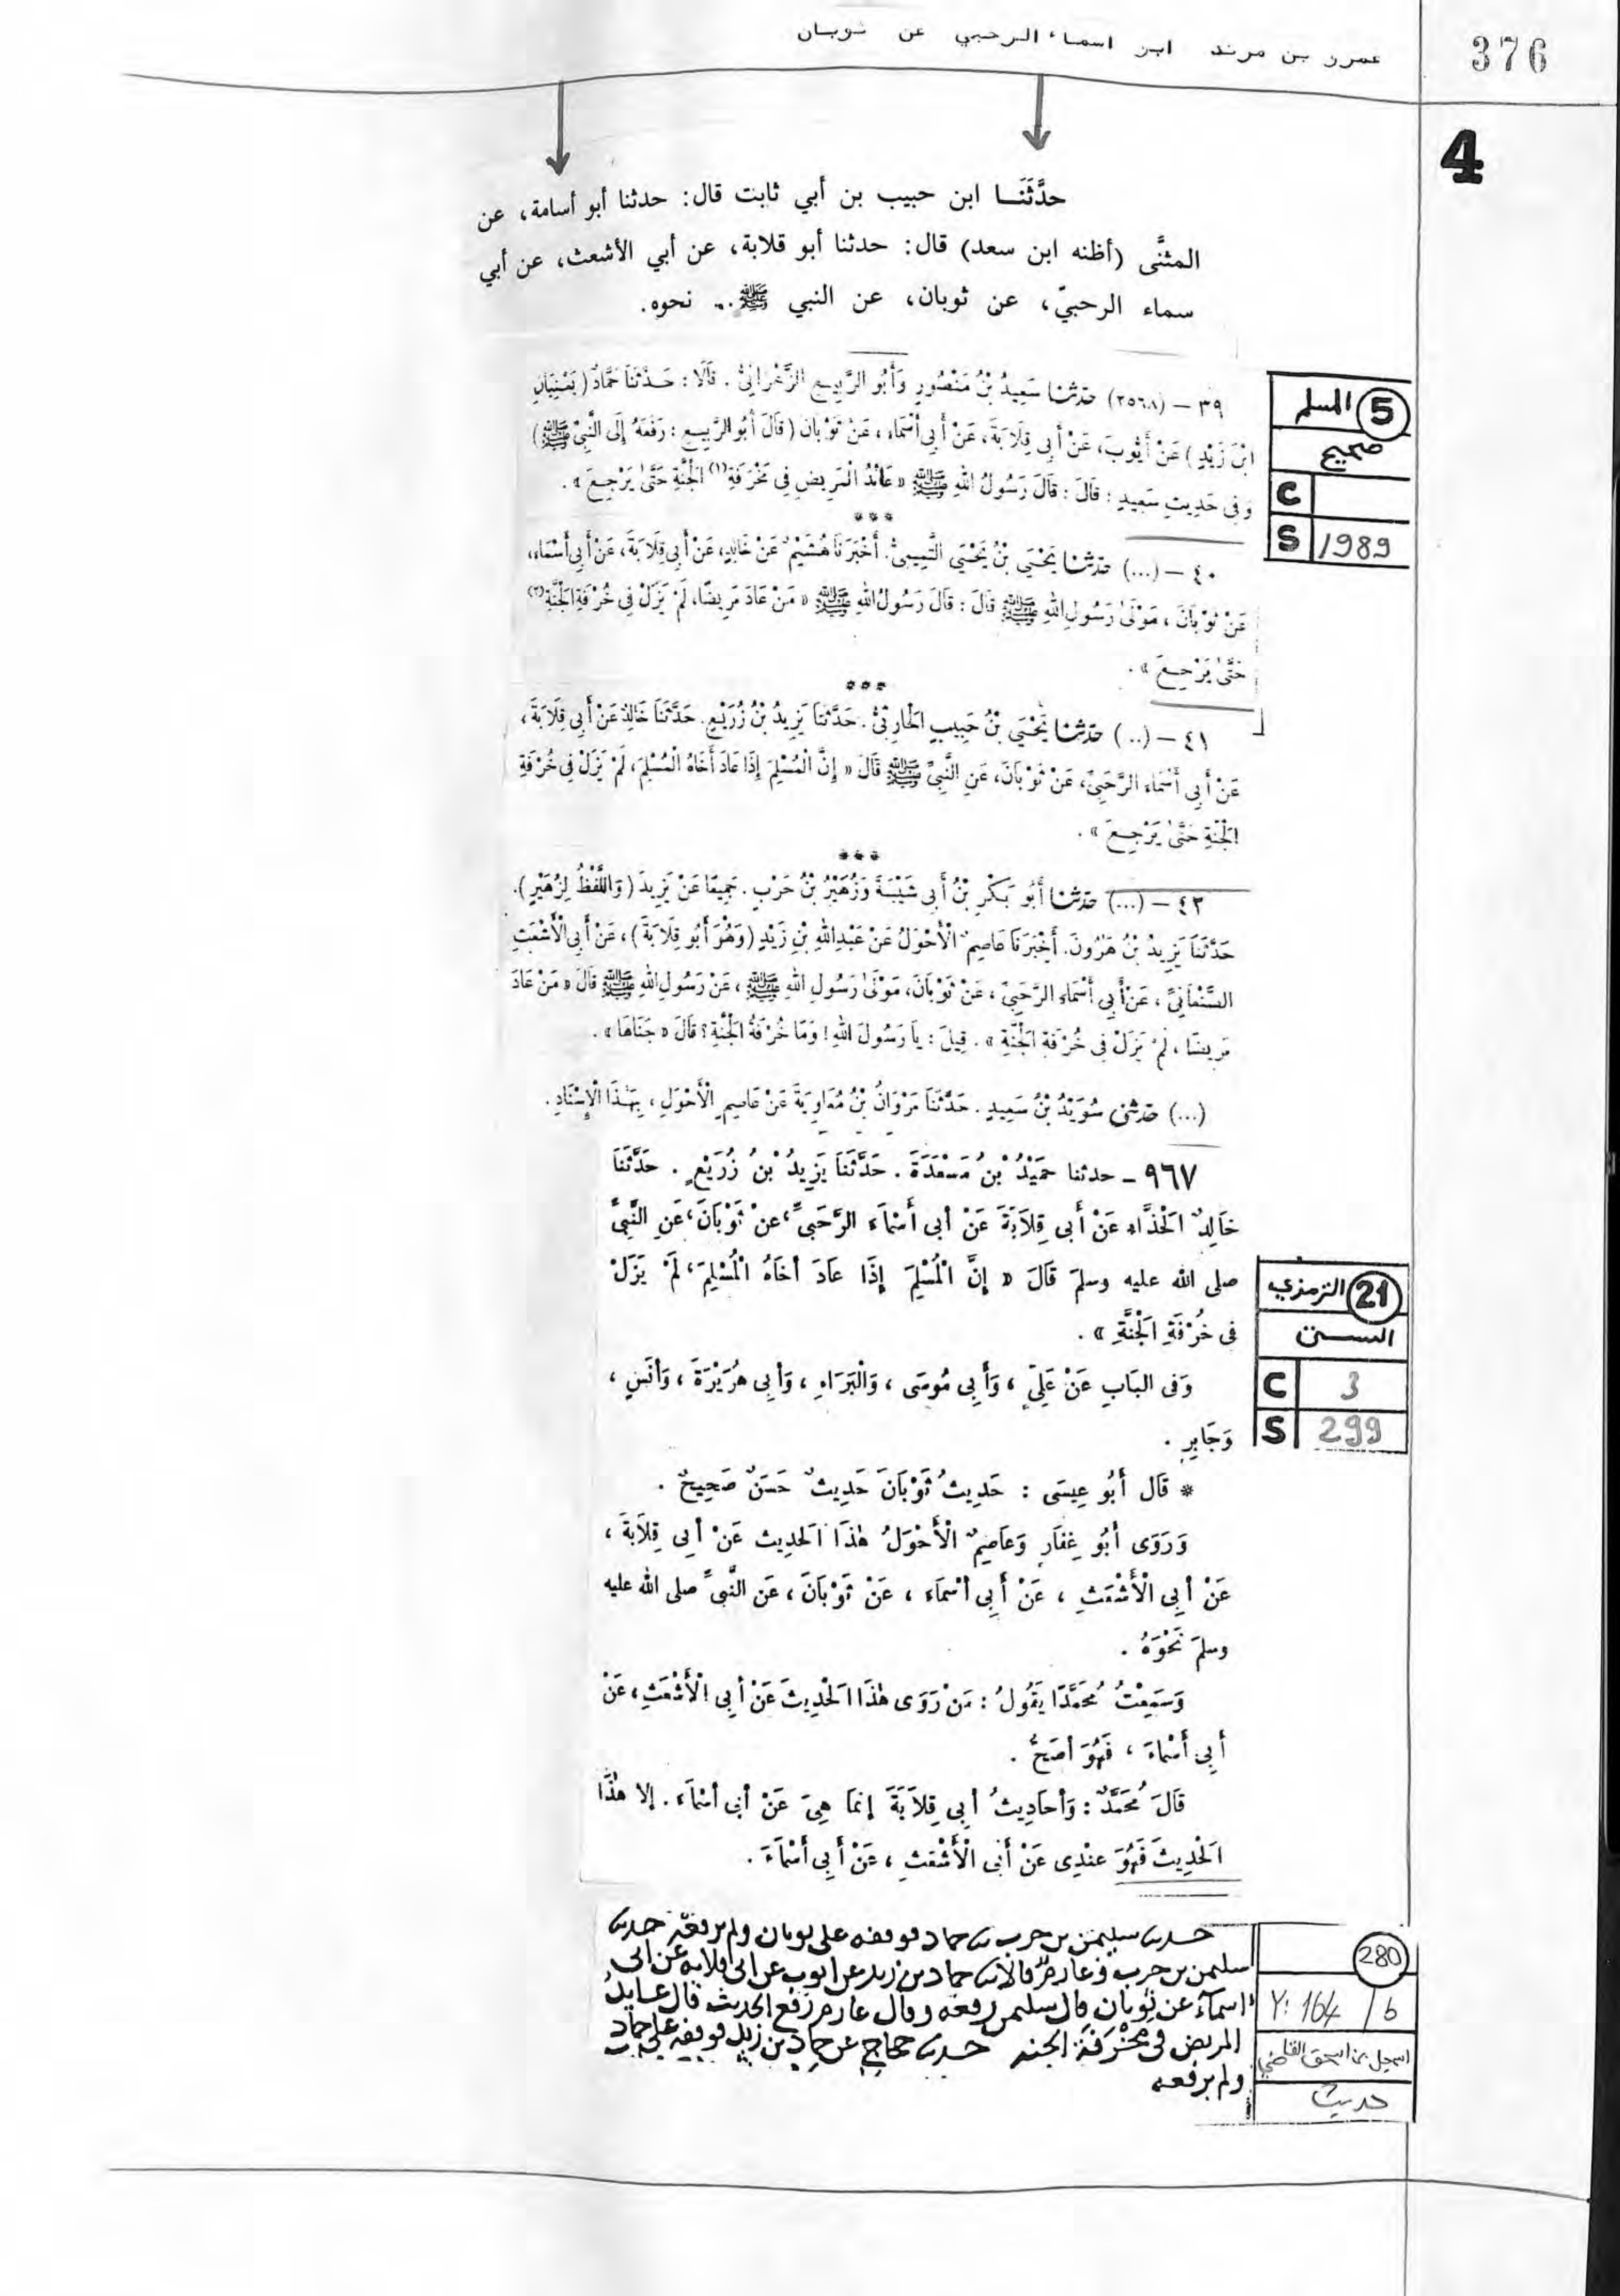 376
عمرو بن مرثد ابو اسماء الرحبي عن ثوبان
4
حدَّثَنَا ابن حبيب بن أبي ثابت قال: حدثنا أبو أسامة، عن
المثنَّى (أظنه ابن سعد) قال: حدثنا أبو قلابة، عن أبي الأشعث، عن أبي
سماء الرحبيّ، عن ثوبان، عن النبي ﷺ.. نحوه.
5 المسلم
صحيح
C
S 1989
٣٩ – (٢٥٦٨) حدثنا سَعِيدُ بْنُ مَنْصُورٍ وَأَبُو الرَّبِيعِ الزَّهْرَانِيُّ. قَالَا: حَدَّثَنَا حَمَّادٌ (يَعْنِيَانِ
ابْنَ زَيْدٍ) عَنْ أَيُّوبَ، عَنْ أَبِي قِلَابَةَ، عَنْ أَبِي أَسْمَاءَ، عَنْ ثَوْبَانَ (قَالَ أَبُو الرَّبِيعِ: رَفَعَهُ إِلَى النَّبِيِّ ﷺ)
وَفِي حَدِيثِ سَعِيدٍ: قَالَ: قَالَ رَسُولُ اللهِ ﷺ «عَائِدُ الْمَرِيضِ فِي مَخْرَفَةِ(١) الْجَنَّةِ حَتَّىٰ يَرْجِعَ».
***
٤٠ – (...) حدثنا يَحْيَى بْنُ يَحْيَى التَّمِيمِيُّ. أَخْبَرَنَا هُشَيْمٌ عَنْ خَالِدٍ، عَنْ أَبِي قِلَابَةَ، عَنْ أَبِي أَسْمَاءَ،
عَنْ ثَوْبَانَ، مَوْلَىٰ رَسُولِ اللهِ ﷺ قَالَ: قَالَ رَسُولُ اللهِ ﷺ «مَنْ عَادَ مَرِيضًا، لَمْ يَزَلْ فِي خُرْفَةِ الْجَنَّةِ(٢)
حَتَّىٰ يَرْجِعَ».
***
٤١ – (..) حدثنا يَحْيَى بْنُ حَبِيبٍ الْحَارِثِيُّ. حَدَّثَنَا يَزِيدُ بْنُ زُرَيْعٍ. حَدَّثَنَا خَالِدٌ عَنْ أَبِي قِلَابَةَ،
عَنْ أَبِي أَسْمَاءَ الرَّحَبِيِّ، عَنْ ثَوْبَانَ، عَنِ النَّبِيِّ ﷺ قَالَ «إِنَّ الْمُسْلِمَ إِذَا عَادَ أَخَاهُ الْمُسْلِمَ، لَمْ يَزَلْ فِي خُرْفَةِ
الْجَنَّةِ حَتَّىٰ يَرْجِعَ».
***
٤٢ – (...) حدثنا أَبُو بَكْرِ بْنُ أَبِي شَيْبَةَ وَزُهَيْرُ بْنُ حَرْبٍ. جَمِيعًا عَنْ يَزِيدَ (وَاللَّفْظُ لِزُهَيْرٍ).
حَدَّثَنَا يَزِيدُ بْنُ هَٰرُونَ. أَخْبَرَنَا عَاصِمٌ الْأَحْوَلُ عَنْ عَبْدِ اللهِ بْنِ زَيْدٍ (وَهُوَ أَبُو قِلَابَةَ)، عَنْ أَبِي الْأَشْعَثِ
الصَّنْعَانِيِّ، عَنْ أَبِي أَسْمَاءَ الرَّحَبِيِّ، عَنْ ثَوْبَانَ، مَوْلَىٰ رَسُولِ اللهِ ﷺ، عَنْ رَسُولِ اللهِ ﷺ قَالَ «مَنْ عَادَ
مَرِيضًا، لَمْ يَزَلْ فِي خُرْفَةِ الْجَنَّةِ». قِيلَ: يَا رَسُولَ اللهِ! وَمَا خُرْفَةُ الْجَنَّةِ؟ قَالَ «جَنَاهَا».
(...) حدثني سُوَيْدُ بْنُ سَعِيدٍ. حَدَّثَنَا مَرْوَانُ بْنُ مُعَاوِيَةَ عَنْ عَاصِمٍ الْأَحْوَلِ، بِهَٰذَا الْإِسْنَادِ.
٩٦٧ – حدثنا حُمَيْدُ بْنُ مَسْعَدَةَ. حَدَّثَنَا يَزِيدُ بْنُ زُرَيْعٍ. حَدَّثَنَا
خَالِدٌ الْحَذَّاءِ عَنْ أَبِي قِلَابَةَ عَنْ أَبِي أَسْمَاءَ الرَّحَبِيِّ، عَنْ ثَوْبَانَ، عَنِ النَّبِيِّ
صلى الله عليه وسلم قَالَ «إِنَّ الْمُسْلِمَ إِذَا عَادَ أَخَاهُ الْمُسْلِمَ، لَمْ يَزَلْ
فِي خُرْفَةِ الْجَنَّةِ».
21 الترمذي
السنن
C 3
S 299
وَفِي البَابِ عَنْ عَلِيٍّ، وَأَبِي مُوسَى، وَالْبَرَاءِ، وَأَبِي هُرَيْرَةَ، وَأَنَسٍ،
وَجَابِرٍ.
* قَالَ أَبُو عِيسَى: حَدِيثُ ثَوْبَانَ حَدِيثٌ حَسَنٌ صَحِيحٌ.
وَرَوَى أَبُو غِفَارٍ وَعَاصِمٌ الْأَحْوَلُ هٰذَا الْحَدِيثَ عَنْ أَبِي قِلَابَةَ،
عَنْ أَبِي الْأَشْعَثِ، عَنْ أَبِي أَسْمَاءَ، عَنْ ثَوْبَانَ، عَنِ النَّبِيِّ صلى الله عليه
وسلم نَحْوَهُ.
وَسَمِعْتُ مُحَمَّدًا يَقُولُ: مَنْ رَوَى هٰذَا الْحَدِيثَ عَنْ أَبِي الْأَشْعَثِ، عَنْ
أَبِي أَسْمَاءَ، فَهُوَ أَصَحُّ.
قَالَ مُحَمَّدٌ: وَأَحَادِيثُ أَبِي قِلَابَةَ إِنَّمَا هِيَ عَنْ أَبِي أَسْمَاءَ. إِلَّا هٰذَا
الْحَدِيثَ فَهُوَ عِنْدِي عَنْ أَبِي الْأَشْعَثِ، عَنْ أَبِي أَسْمَاءَ.
حدثنا سليمن بن حرب نا حماد فوقفه على ثوبان ولم يرفعه حدثنا
سليمن بن حرب وعارم قالا نا حماد بن زيد عن ايوب عن ابي قلابة عن ابي
اسمآء عن ثوبان قال سليمن رفعه وقال عارم رفع الحديث قال عايد
المريض في مَخْرَفَة الجنة حدثنا حجاج عن حماد بن زيد فوقفه على حماد
ولم يرفعه
280
Y: 164 / b
اسمعيل بن اسحق القاضي
حديث